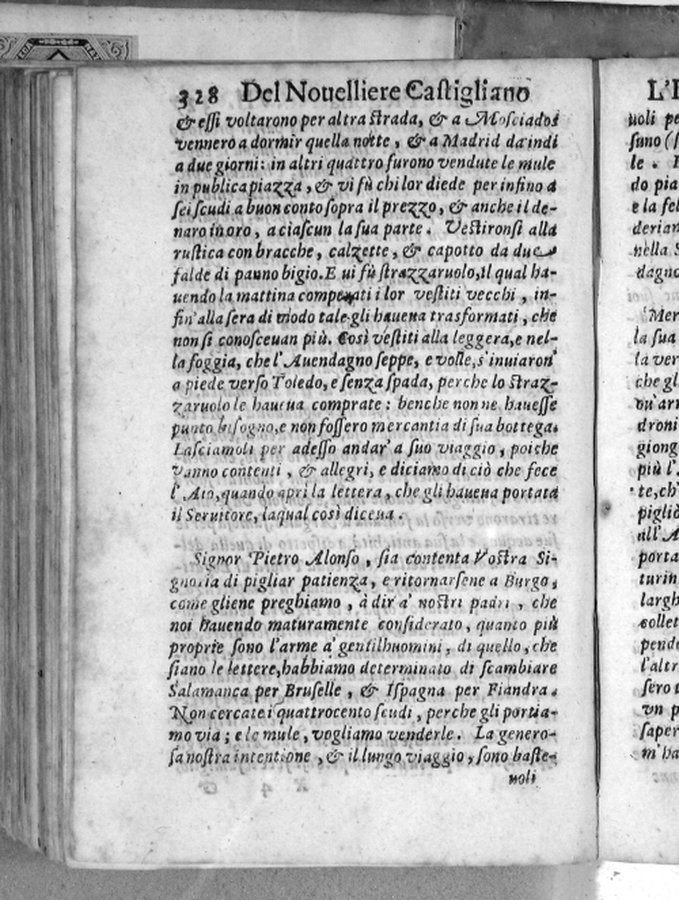 328 Del Nouelliere Castigliano
& essi voltarono per altra strada, & a Mosciados
vennero a dormir quella notte, & a Madrid da indi
a due giorni: in altri quattro furono vendute le mule
in publica piazza, & vi fù chi lor diede per infino a
sei scudi a buon conto sopra il prezzo, & anche il de-
naro in oro, a ciascun la sua parte. Vestironsi alla
rustica con bracche, calzette, & capotto da due
falde di panno bigio. E ui fù strazzaruolo, il qual ha-
uendo la mattina comperati i lor vestiti vecchi, in-
fin'alla sera di modo tale gli haueua trasformati, che
non si conosceuan più. Così vestiti alla leggera, e nel-
la foggia, che l'Auendagno seppe, e volle, s'inuiaron'
a piede verso Toledo, e senza spada, perche lo straz-
zaruolo le haueua comprate: benche non ne hauesse
punto bisogno, e non fossero mercantia di sua bottega.
Lasciamoli per adesso andar'a suo viaggio, poiche
vanno contenti, & allegri, e diciamo di ciò che fece
l'Aio, quando aprì la lettera, che gli haueua portata
il Seruitore, laqual così diceua.
Signor Pietro Alonso, sia contenta Vostra Si-
gnoria di pigliar patienza, e ritornarsene a Burgo,
come gliene preghiamo, à dir a' nostri padri, che
noi hauendo maturamente considerato, quanto più
proprie sono l'arme a' gentilhuomini, di quello, che
siano le lettere, habbiamo determinato di scambiare
Salamanca per Bruselle, & Ispagna per Fiandra.
Non cercate i quattrocento scudi, perche gli portia-
mo via; e le mule, vogliamo venderle. La genero-
sa nostra intentione, & il lungo viaggio, sono baste-
uoli